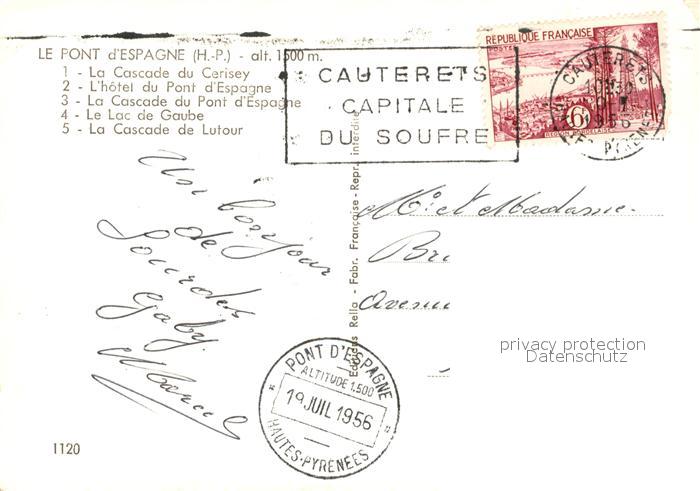 LE PONT d'ESPAGNE (H.-P.) - alt. 1500 m.
1 - La Cascade du Cerisey
2 - L'hôtel du Pont d'Espagne
3 - La Cascade du Pont d'Espagne
4 - Le Lac de Gaube
5 - La Cascade de Lutour
CAUTERETS
CAPITALE
DU SOUFRE
RÉPUBLIQUE FRANÇAISE
POSTES
6F
RÉGION BORDELAISE
CAUTERETS
PYRÉNÉES
Un bonjour
de
Lourdes
Gaby
Marcel
Editions Rella - Fabr. Française - Repr. interdite
Mr et Madame
Bru
Avenue
privacy protection
Datenschutz
PONT D'ESPAGNE
ALTITUDE 1.500
19 JUIL 1956
HAUTES-PYRÉNÉES
1120